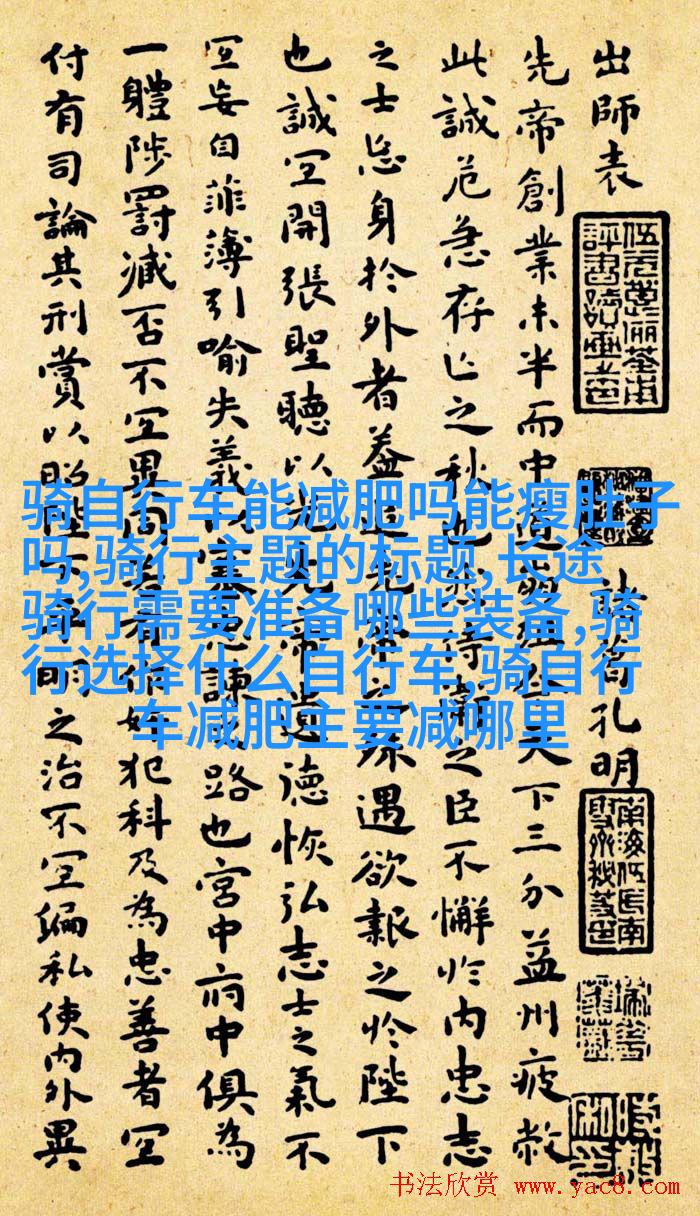 出師表
諸葛孔明
先帝創業未半而中道天下三分益州疲敝
此誠危急存亡之秋也然侍衛之臣不懈於內忠志
之士忘身於外者蓋追先帝之殊遇欲報之於陛下
也誠宜開張聖聽以光先帝遺德恢弘志士之氣不
宜妄自菲薄引喻失義以塞忠諫之路也宮中府中俱為
一體陟罰臧否不宜異同若有作奸犯科及為忠善者宜
付有司論其刑賞以昭陛下平明之治不宜偏私使內外異
骑自行车能减肥吗能瘦肚子
吗,骑行主题的标题,长途
骑行需要准备哪些装备,骑
行选择什么自行车,骑自行
车减肥主要减哪里
书法欣赏 www.yac8.com